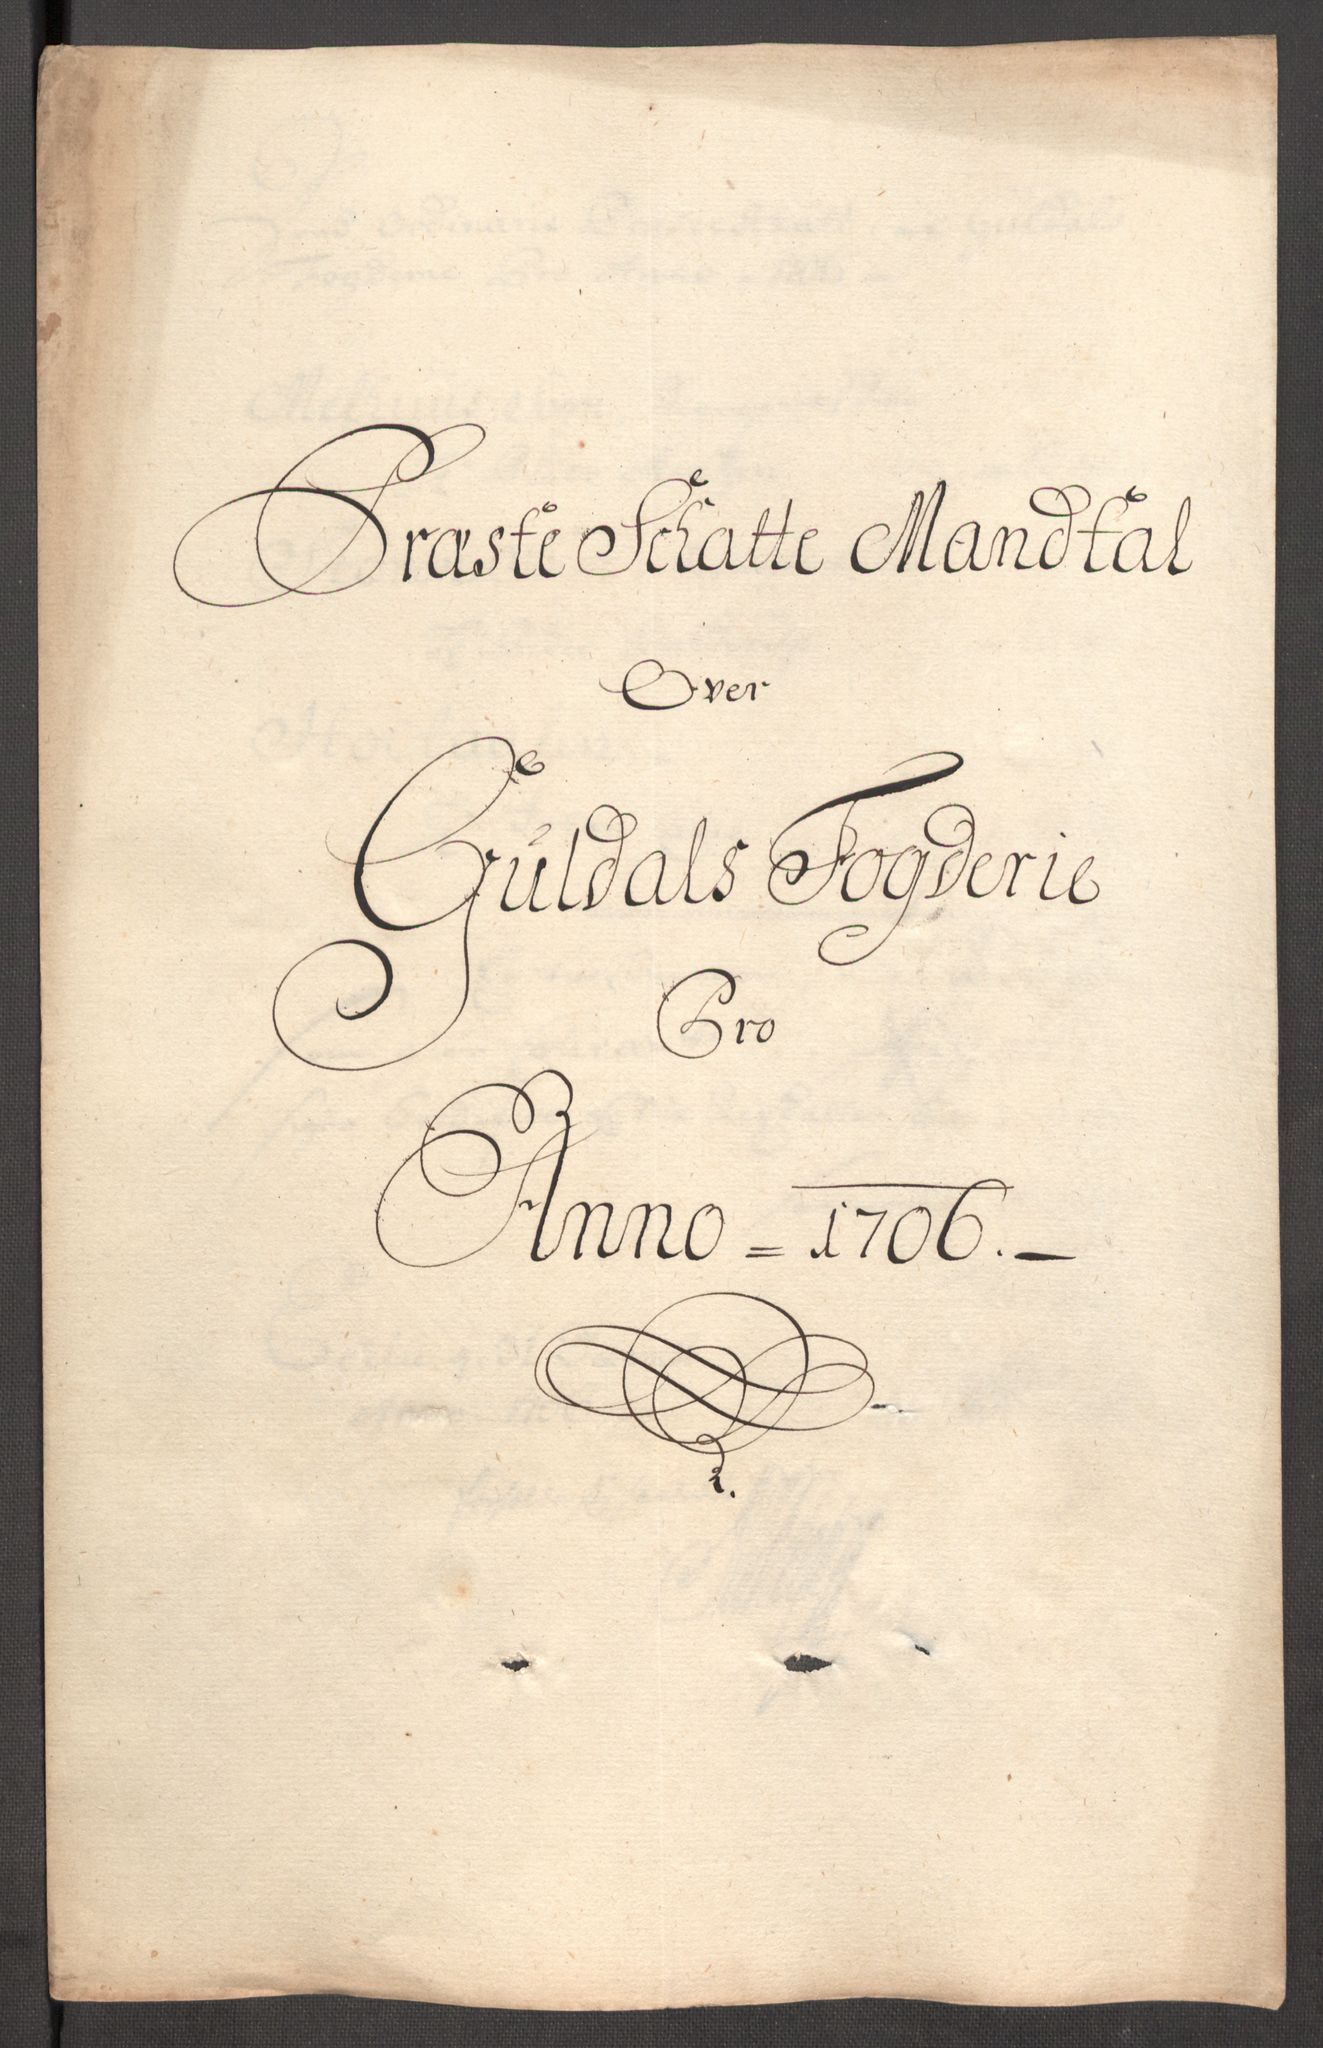 Præste Schatte Mandtal
Over
Guldals Fogderie
Pro
Anno = 1706. —